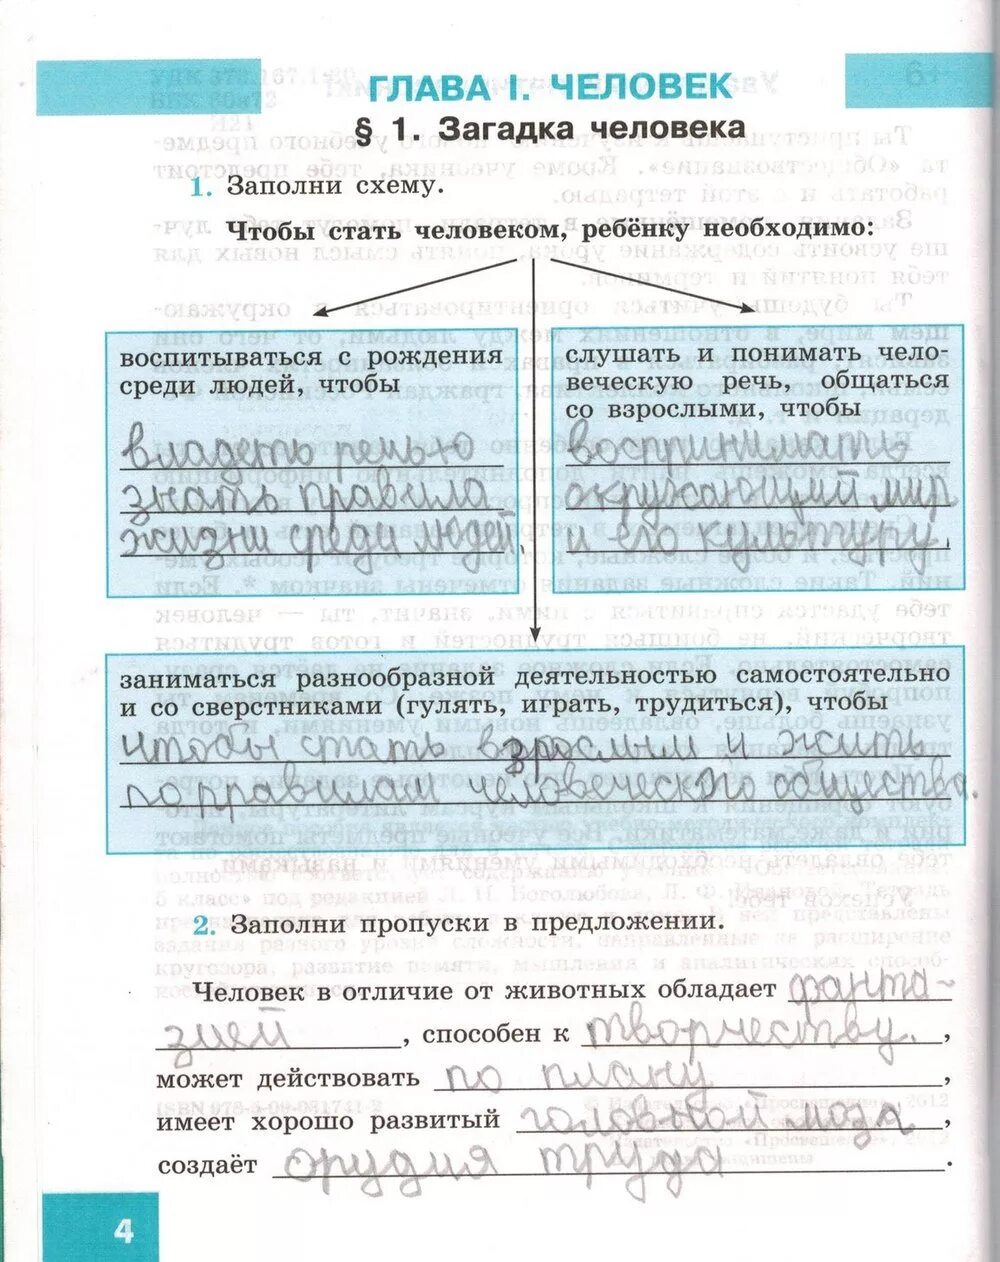 ГЛАВА I. ЧЕЛОВЕК
§ 1. Загадка человека
1. Заполни схему.
Чтобы стать человеком, ребёнку необходимо:
воспитываться с рождения
среди людей, чтобы
владеть речью
знать правила
жизни среди людей.
слушать и понимать чело-
веческую речь, общаться
со взрослыми, чтобы
воспринимать
окружающий мир
и его культуру.
заниматься разнообразной деятельностью самостоятельно
и со сверстниками (гулять, играть, трудиться), чтобы
чтобы стать взрослым и жить
по правилам человеческого общества.
2. Заполни пропуски в предложении.
Человек в отличие от животных обладает фанта-
зией, способен к творчеству.,
может действовать по плану,
имеет хорошо развитый головной мозг,
создаёт орудия труда.
4